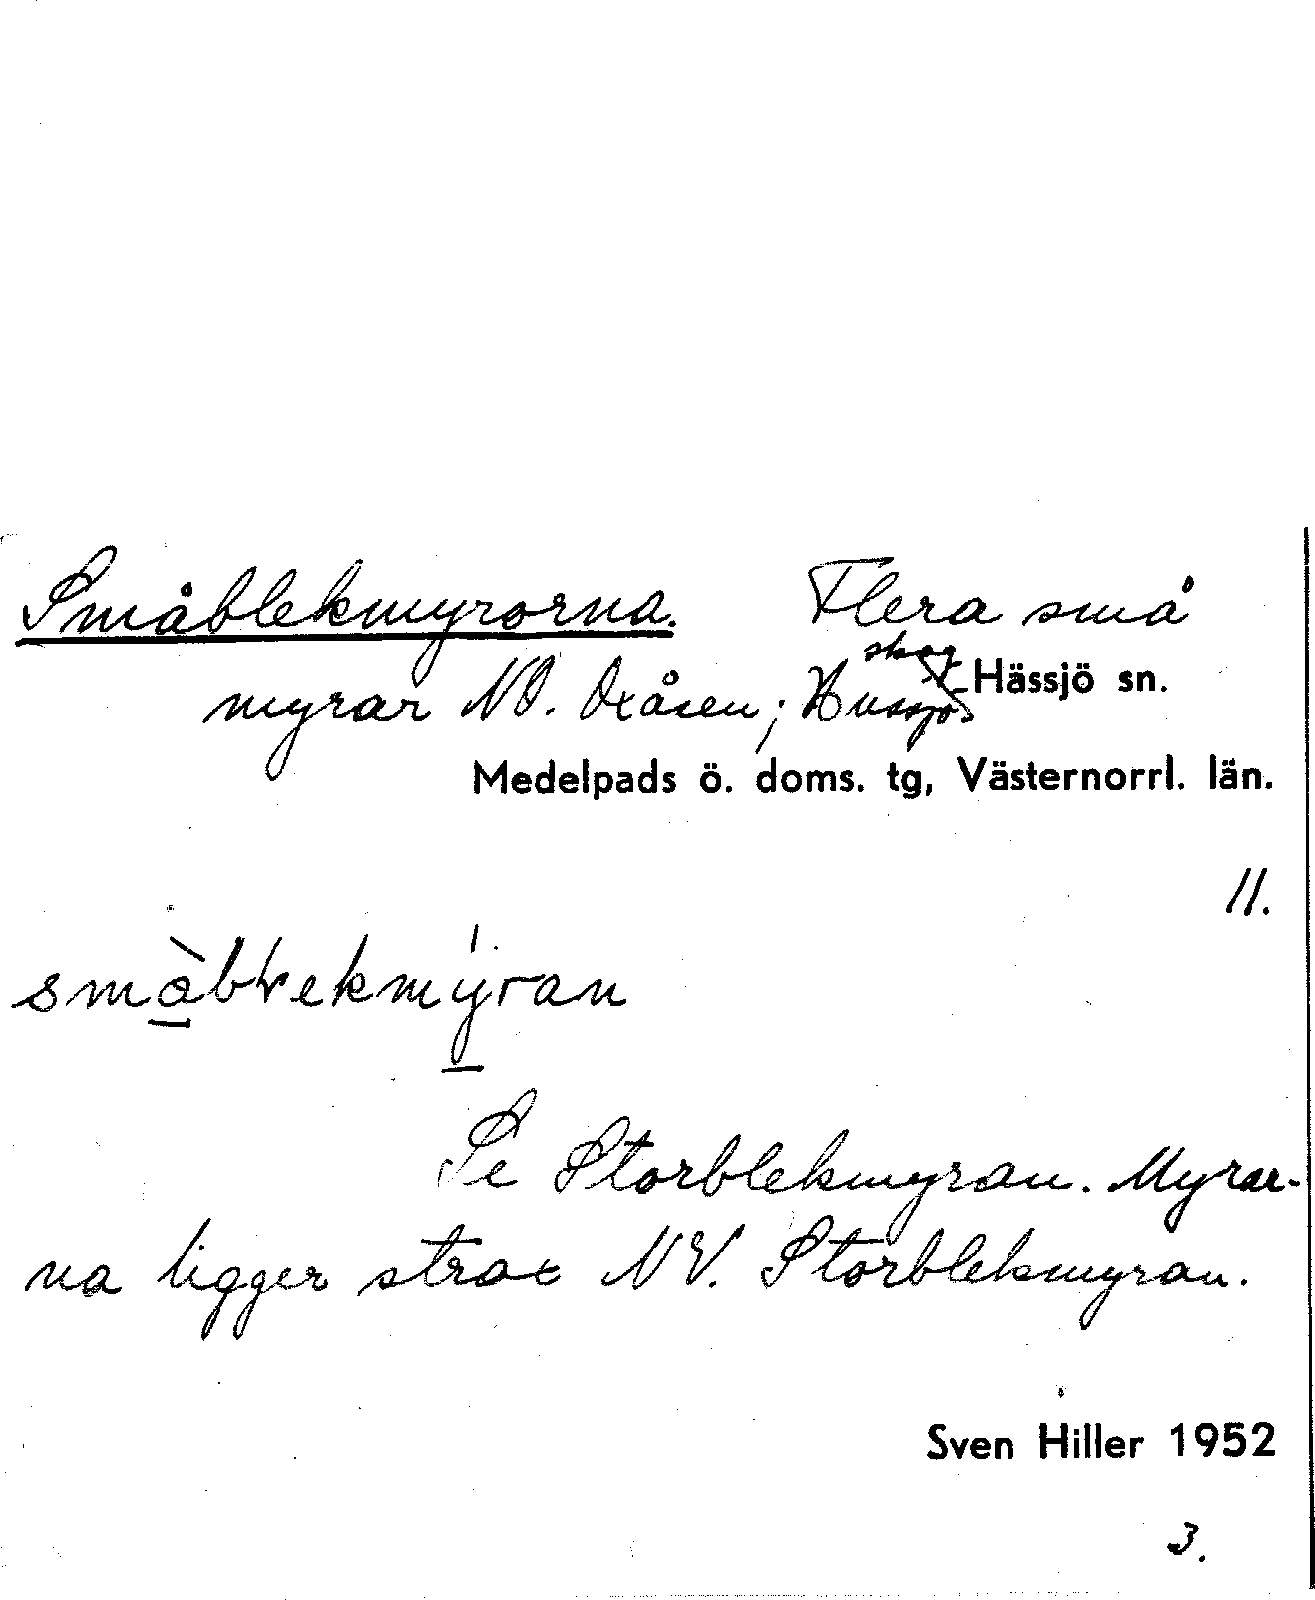 Småblekmyrorna. Flera små
myrar NO. Oxåsen; Hussjö skog Hässjö sn.
Medelpads ö. doms. tg, Västernorrl. län.
11.
Se Storblekmyran. Myrar-
na ligger strax NV. Storblekmyran.
Sven Hiller 1952
3.